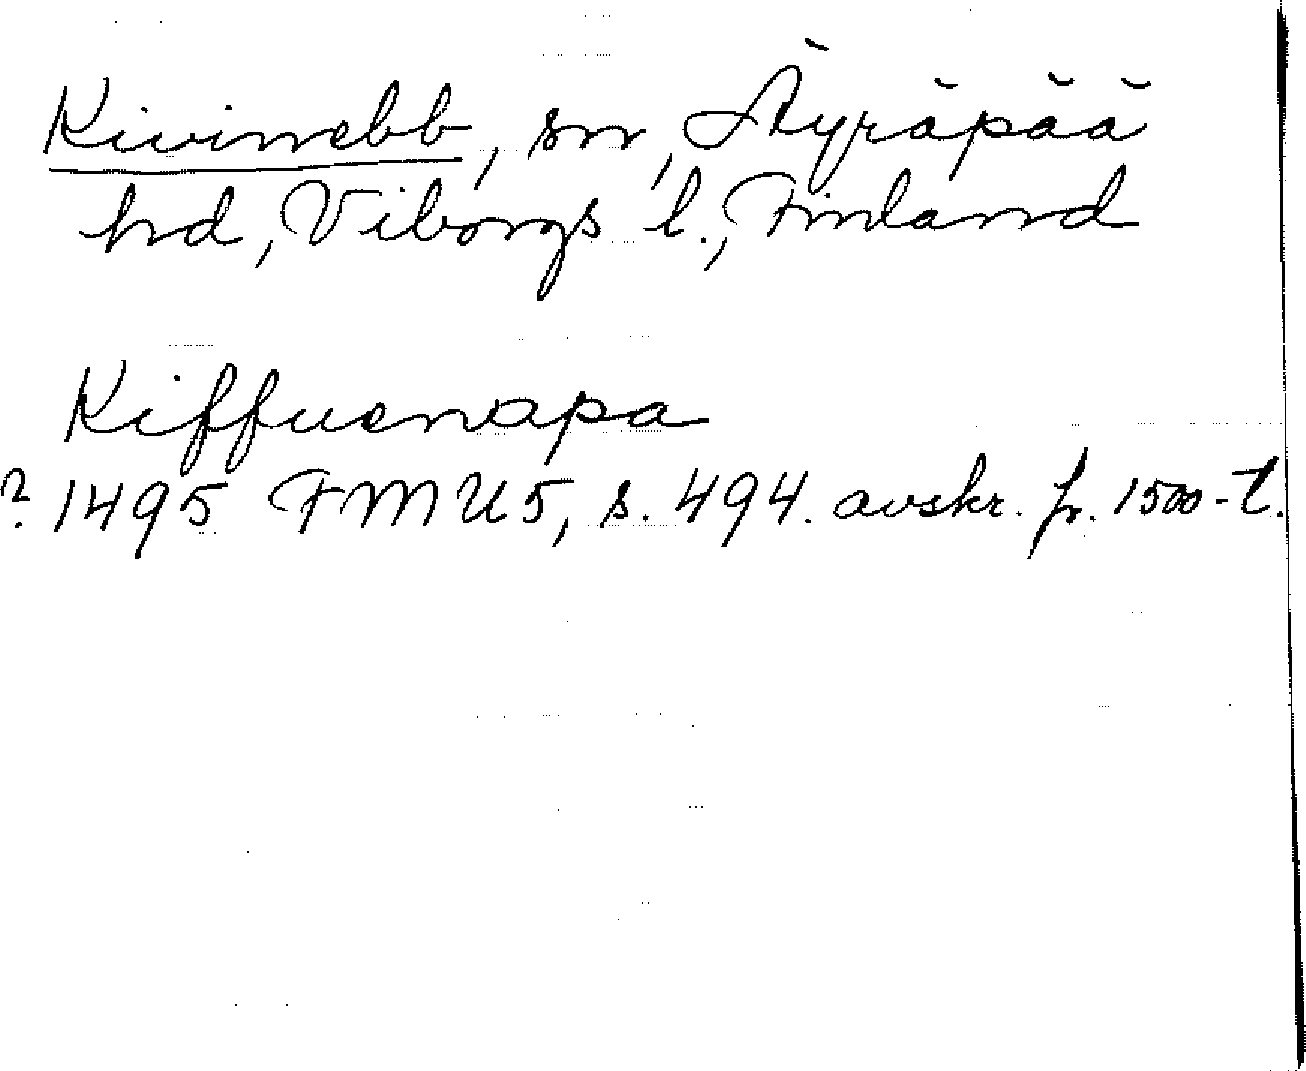 Kivinebb, sn, Äyräpää
hd, Viborgs l., Finland
Kiffuenapa
? 1495 FMU 5, s. 494. avskr. fr. 1500-t.